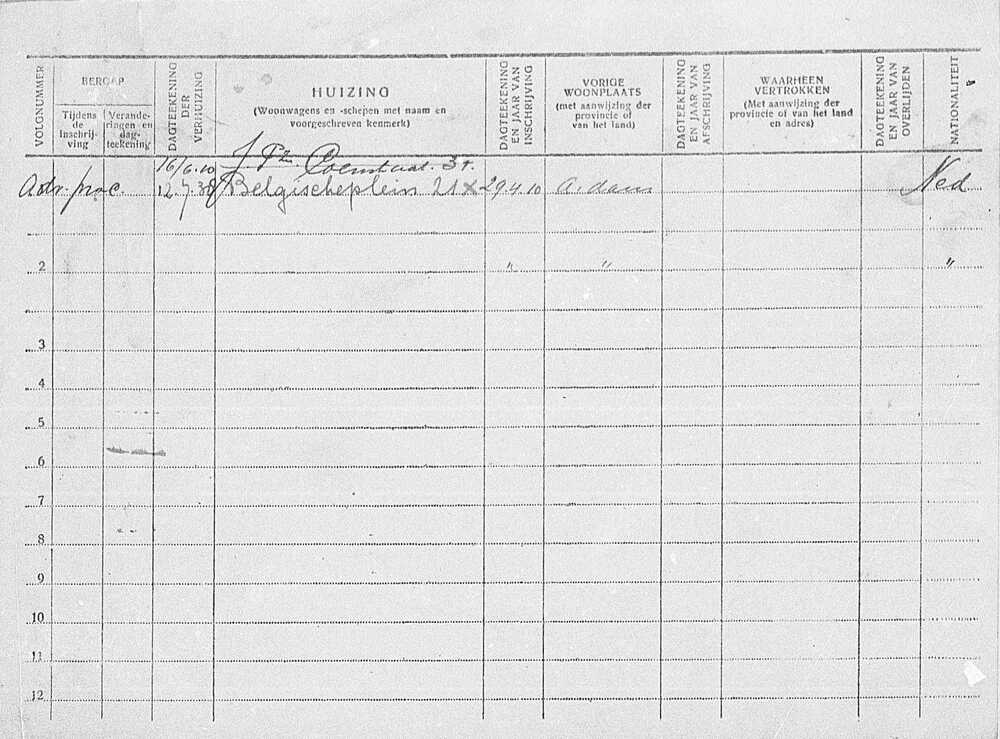 VOLGNUMMER
BEROEP
Tijdens de inschrijving
Verande-ringen en dag-teekening
DAGTEEKENING DER VERHUIZING
HUIZING
(Woonwagens en -schepen met naam en
voorgeschreven kenmerk)
DAGTEEKENING EN JAAR VAN INSCHRIJVING
VORIGE
WOONPLAATS
(met aanwijzing der
provincie of
van het land)
DAGTEEKENING EN JAAR VAN AFSCHRIJVING
WAARHEEN
VERTROKKEN
(Met aanwijzing der
provincie of van het land
en adres)
DAGTEEKENING EN JAAR VAN OVERLIJDEN
NATIONALITEIT
16/6.10 J. Pz. Coenstraat. 31.
Adv. proc. 12.7.38 Belgischeplein 21 X 29.4.10 A.dam Ned
2 " " "
3
4
5
6
7
8
9
10
11
12